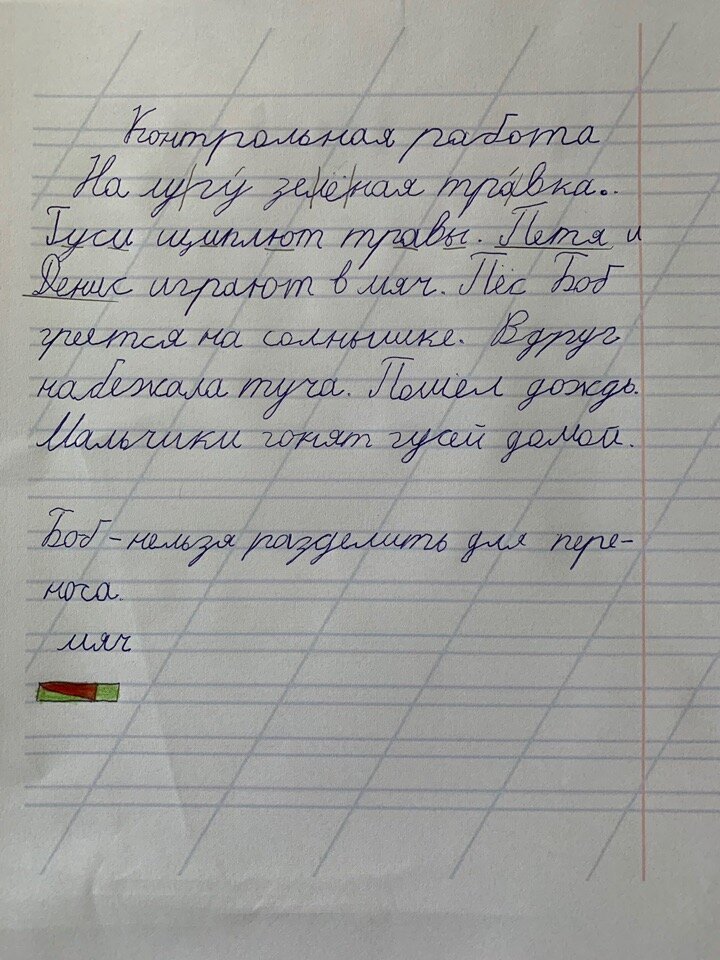 Контрольная работа
На лу/гу́ зе/лё/ная тра́/вка..
Гуси щиплют травы. Петя и
Денис играют в мяч. Пёс Боб
греется на солнышке. Вдруг
набежала туча. Пошёл дождь.
Мальчики гонят гусей домой.
Боб - нельзя разделить для пере-
носа.
мяч